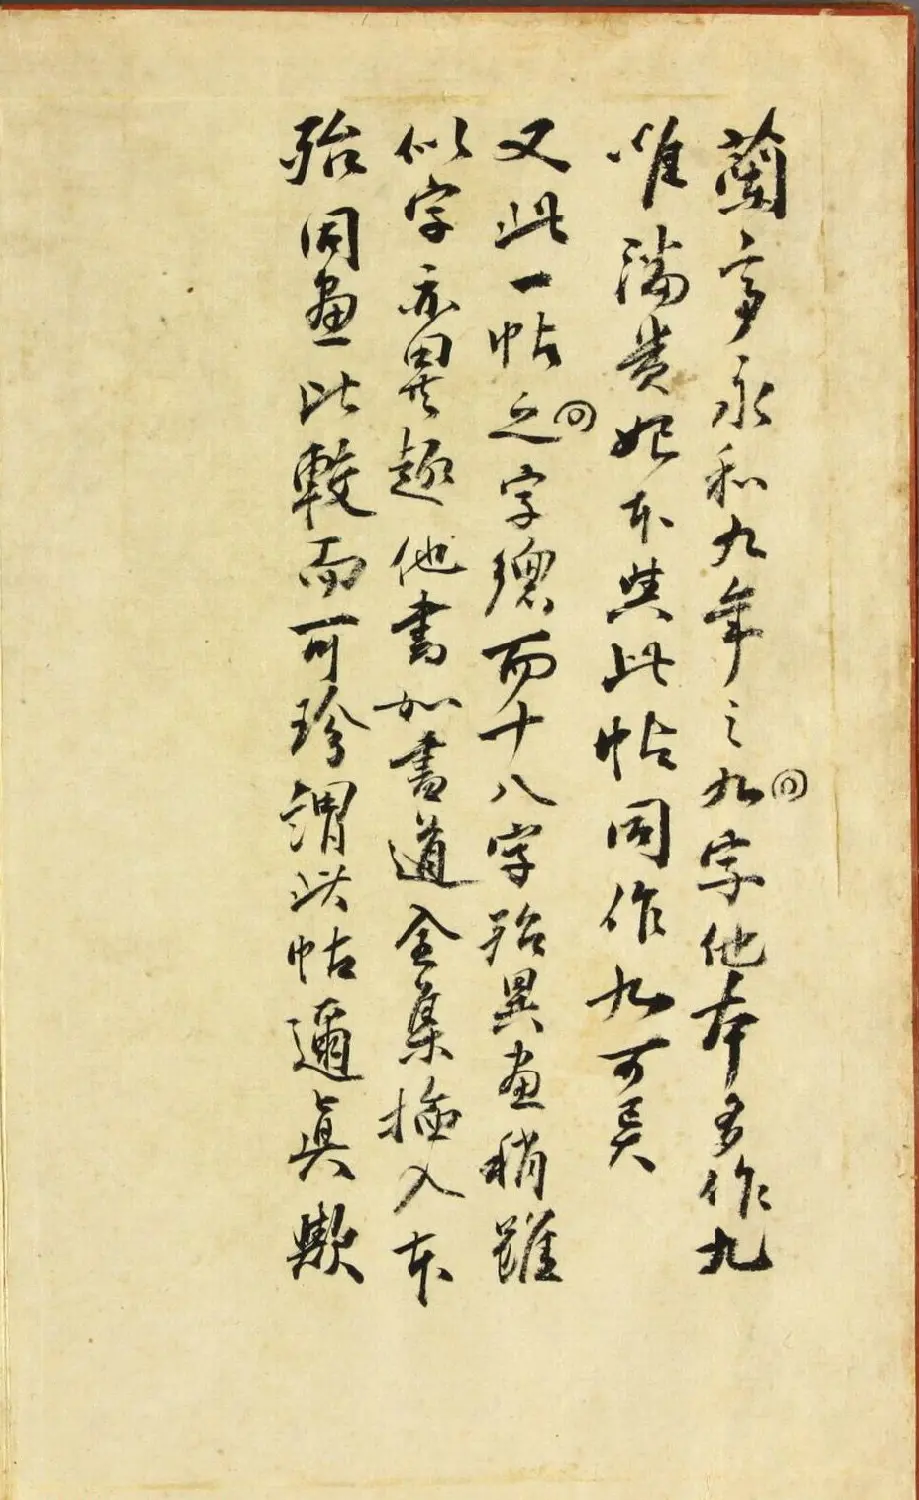 蘭亭永和九年之九字他本多作九
唯潘貴妃本與此帖同作九可異
又此一帖之字總而十八字殆異畫稍雖
似字亦異趣他書如書道全集揷入本
殆同畫比較而可珍謂此帖邇真歟